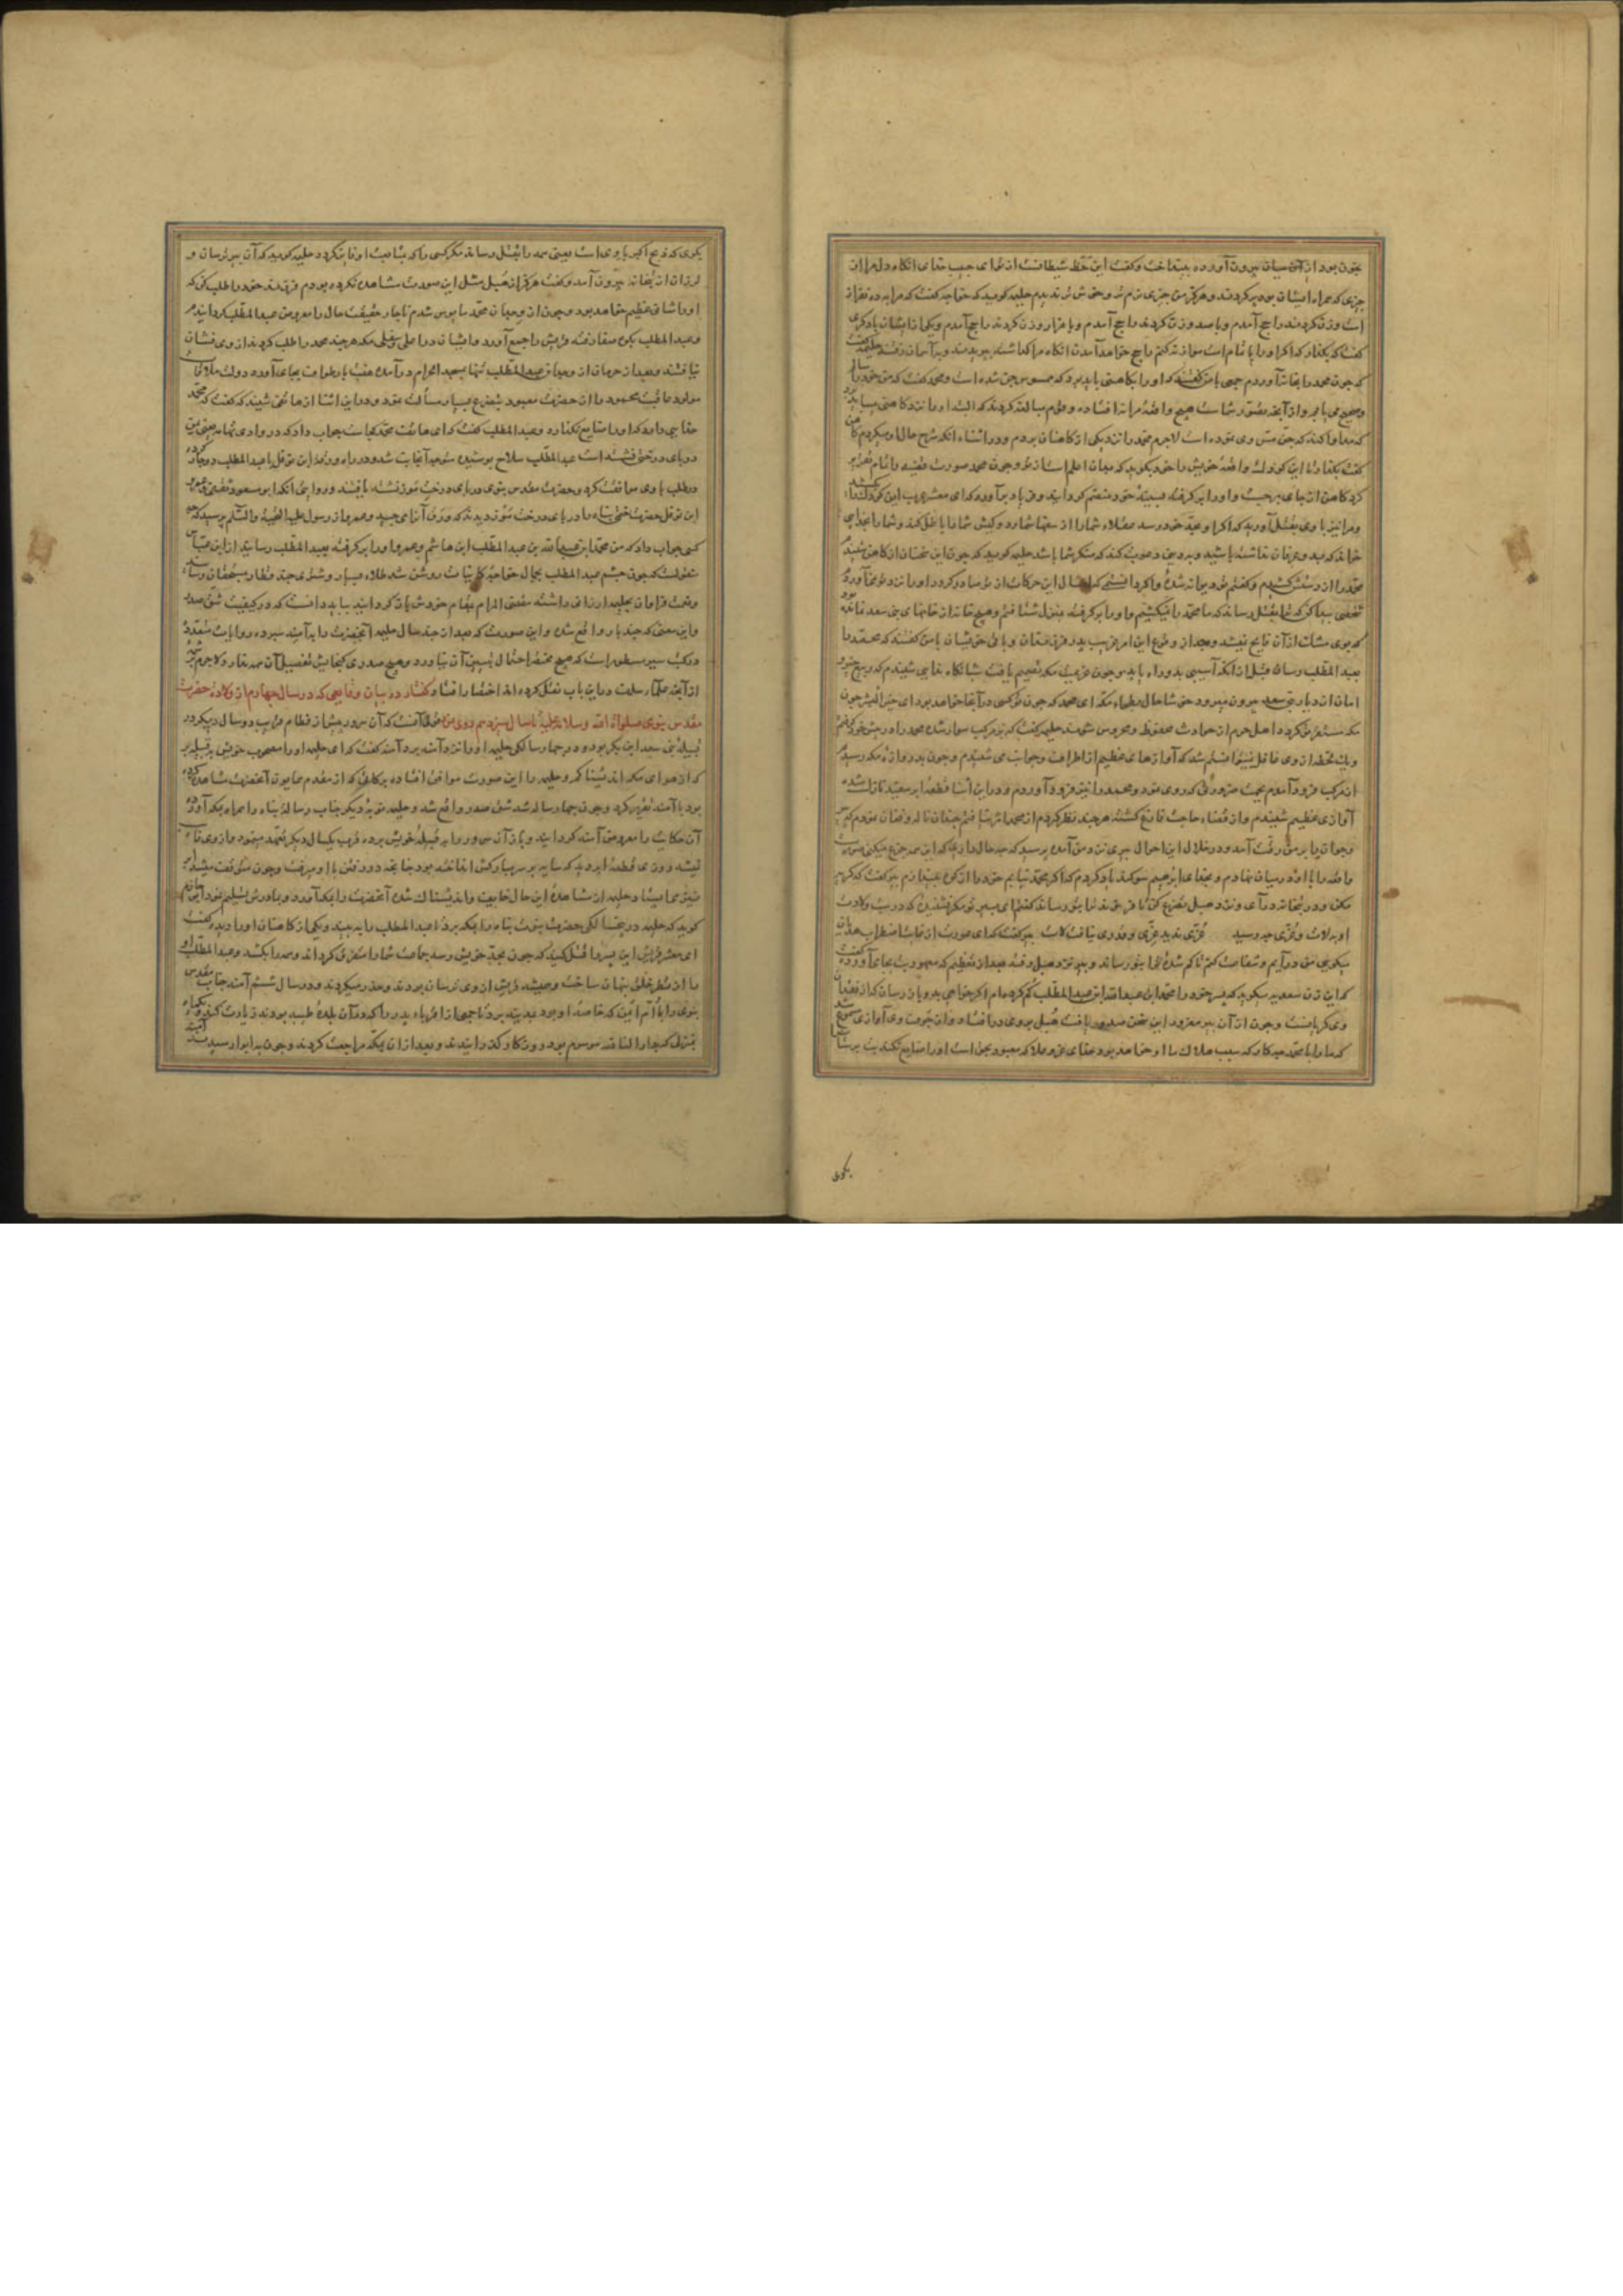 بخون بود از آن میان بیرون آورده بینداخت و کفت این حظ شیطانست از تو ای حبیب خدای انکاه دل مرا از
چیزی که همراه ایشان بود پر کردند و هرکز من چیزی نرم تر و خوش تر ندیدم حلیمه کوید که خواجه کفت که مرا به ده نفر از
است وزن کردند راجح آمدم و با صد وزن کردند راجح آمدم و با هزار وزن کردند راجح آمدم و یکی از ایشان با دیکری
کفت که بکذار که اکر او را با تمام امت موازنه کنم راجح خواهد آمدن انکاه مرا کذاشته بپریدند و بر آسمان رفتند حلیمه کفت
که چون محمد را بخانه آوردم جمعی با من کفتند که او را بکاهنی باید برد که ممسوس جن شده است و محمد کفت که من خود را سالم
و صحیح می یابم و از آنچه تصور شماست هیچ واقعه مرا نه افتاده و قوم مبالغه کردند که البته او را نزد کاهنی میباید برد
که معاونت کند که جن مس وی نموده است لاجرم محمد را نزد یکی از کاهنان بردم و در اثناء انکه شرح حال او میکردم کاهن
کفت بکذار تا این کودک واقعه خویش را خود بکوید که میان اعلم است از تو و چون محمد صورت قضیه را تمام تقریر
کرد کاهن از جای برجست و او را بر کرفته بسینه خود منضم کردانید و فریاد برآورد که ای معشر عرب این کودک را بکشید
و مرا نیز با وی بقتل آورید که اکر او بحد خود رسد عقلاء شما را از سفها شمارد و کیش شما را باطل کند و شما را بخدایی
خواند که بدو عرفان نداشته باشید و بدینی دعوت کند که منکر شما باشد حلیمه کوید که چون این سخنان از کاهن شنیدم
محمد را از دستش کشیدم و کفتم تو دیوانه شدهٔ و اکر دانستمی که امثال این حرکات از تو صادر کردد او را نزد تو نمی آوردم
شخصی پیدا کن که ترا بقتل رساند که ما محمد را نمیکشیم و او را بر کرفته بمنزل شتافتم و هیچ خانه از خانهای بنی سعد نمانده بود
که بوی مشک از آن فایح نیشد و بعد از وقوع این امر غریب پدر فرزندان و باقی خویشان با من کفتند که محمد را
بعبد المطلب رسان قبل از انکه آسیبی بدو راه یابد و چون عزیمت مکه تصمیم یافت شبانکاه ندایی شنیدم که ربیع خیر و
امان از دیار بنی سعد بیرون میرود خوشا حال بطحاء مکه ای محمد که چون تو کسی در آنجا خواهد بود ای خیر البشر چون
مکه مستغرق کردد اهل حرم از حوادث محفوظ و محروس شوند حلیمه کفت که بر مرکب سوار شده محمد را در پیش خود کرفتم
و یک لحظه از وی غافل نمیتوانستم شد که آوازهای عظیم از اطراف و جوانب می شنیدم و چون بدروازه مکه رسیدم
از مرکب فرود آمدم بجهت ضرورتی که روی نمود و محمد را نیز فرود آوردم و در این اثنا قطعهٔ ابر سفید نازل شده
آوازی عظیم شنیدم و از قضاء حاجت فارغ کشته هر چند نظر کردم از محمد اثر نیافتم چندان ناله و فغان نمودم که پیر
و جوان را بر من رقت آمد و در خلال این احوال پیری نزد من آمده پرسید که چه حال داری که این همه جزع میکنی صورت
واقعه را با او در میان نهادم و بخدای ابراهیم سوکند یاد کردم که اکر محمد نیابم خود را از کوه بیندازم پیر کفت که کریه
مکن و در بتخانه درآی و نزد هبل تضرع کن تا فرزند ترا بتو رساند کفتم ای پیر تو مکر نشنیدهٔ که در شب ولادت
او به لات و عزی چه رسید عزی ندید عزی و قدری نیافت لات پیر کفت که ای عورت از غایت اضطراب هذیان
میکویی من درآیم و شفاعت کنم تا کم شدهٔ ترا بتو رساند و پیر نزد هبل رفته بعد از تعظیم که معهودش بجای آورده کفت
که این زن سعدیه میکوید که پسر خود را محمد ابن عبد الله ابن عبد المطلب کم کرده ام اکر خواهی بدو باز رسان که از فقدان
وی کریانست و چون از آن پیر مغرور این سخن صدور یافت هبل بروی در افتاد و از جوف وی آوازی مسموع شد
که ما را با محمد چه کار که سبب هلاک ما او خواهد بود خدای عز و علا که معبود بحق است او را ضایع نکند بت پرستان
بکوی
بکوی که ذبح اکبر با وی است یعنی همه را بقتل رساند مکر کسی را که متابعت او نماید کرد حلیمه کوید که آن پیر ترسان و
لرزان از بتخانه بیرون آمد و کفت هرکز از هبل مثل این صورت مشاهده نکرده بودم فرزند خود را طلب کن که
او را شانی عظیم خواهد بود و چون از وجدان محمد مایوس شدم ناچار حقیقت حال را معروض عبد المطلب کردانیدم
و عبد المطلب بکوه صفا رفته قریش را جمع آورد و ایشان در اعلی و سفلی مکه هر چند محمد را طلب کردند از وی نشان
نیافتند و بعد از حرمان از وجدان عبد المطلب تنها بمسجد الحرام درآمده هفت بار طواف بجای آورده دولت ملاقات
مولود عاقبت محمود را از حضرت معبود بتضرع بسیار مسألت نمود و در این اثنا از هاتفی شنید که کفت که محمد را
خدایی دارد که او را ضایع نکذارد و عبد المطلب کفت که ای هاتف محمد کجاست جواب داد که در وادی تهامه یعنی زمین
در پای درختی نشسته است عبد المطلب سلاح پوشیده متوجه آنجانب شد و در راه ورقة ابن نوفل با عبد المطلب دوچار
در طلب با وی موافقت کرد و حضرت مقدس نبوی در پای درخت موز نشسته یافتند و روایتی انکه ابو مسعود ثقفی و عمرو
ابن نوفل حضرت ختمی پناه را در پای درخت موز دیدند که ورق آنرا می چید و عمرو از رسول علیه التحیة و السلم پرسید که چه
کسی جواب داد که من محمد ابن عبد الله بن عبد المطلب ابن هاشم و عمرو او را بر کرفته بعبد المطلب رسانید از ابن عباس
منقولست که چون چشم عبد المطلب بجمال خواجه کاینات روشن شد طلاء بسیار و شتری چند قطار بمستحقان رسانید
و نعمت فراوان بحلیمه ارزانی داشته مقضی المرام بمقام خودش باز کردانید بباید دانست که در کیفیت شق صدر
و این معنی که چند بار واقع شده و این صورت که بعد از چند سال حلیمه آنحضرت را بآمنه سپرده روایات متعدده
در کتب سیر مسطور است که هیچ مختصر احتمال تبیین آن نیاورد و هیچ صدری کنجایش تفصیل آن همه ندارد و لاجرم بر
از آنچه علماء سلف در این باب نقل کرده اند اختصار افتاد کفتار در بیان وقایعی که در سال چهارم از ولادت حضرت
مقدس نبوی صلوات الله وسلامه علیه تا سال سیزدهم روی نمود منقول آنست که آن سرور پس از فطام قریب دو سال دیکر در
قبیله بنی سعد ابن بکر بود و در چهار سالکی حلیمه او را نزد آمنه برد آمنه کفت که ای حلیمه او را مصحوب خویش بقبیله بر
که از هوای مکه اندیشناکم و حلیمه را این صورت موافق افتاده برکاتی که از مقدم همایون آنحضرت مشاهده کرده
بود با آمنه تقریر کرد و چون چهار ساله شد شق صدر واقع شد و حلیمه نوبه دیکر جناب رسالة پناه را همراه بمکه آورده
آن حکایت را معروض آمنه کردانید و باز آن سرور را بر قبیله خویش برده قریب یکسال دیکر تعهد مینمود و از وی غایب
نیشد روزی قطعهٔ ابر دید که سایه بر سر مبارکش انداخته بود چنانچه در رفتن با او میرفت و چون متوقف میشد ابر
نیز می ایستاد و حلیمه از مشاهدهٔ این حال خایف و اندیشناک شده آنحضرت را بمکه آورد و بمادرش تسلیم نمود
کوید که حلیمه در پنجسالکی حضرت نبوت پناه را بمکه برد تا عبد المطلب را به بیند و یکی از کاهنان او را دیده کفت
ای معشر قریش این پسر را قتل کنید که چون بحد خویش رسد جماعت شما را متفرق کرداند و همه را بکشد و عبد المطلب او
را از نظر خلق پنهان ساخت و همیشه قریش از وی ترسان بودند و حذر میکردند و در سال ششم آمنه جناب مقدس
نبوی را با ام ایمن که خاصهٔ او بود بمدینه برد تا جمعی از اقرباء پدر را که در آن بلدهٔ طیبه بودند زیارت کند و یکماه
بمنزلی که بدار النابغه موسوم بود روزکار کذرانیدند و بعد از ان بمکه مراجعت کردند و چون به ابوا رسیدند آمنه